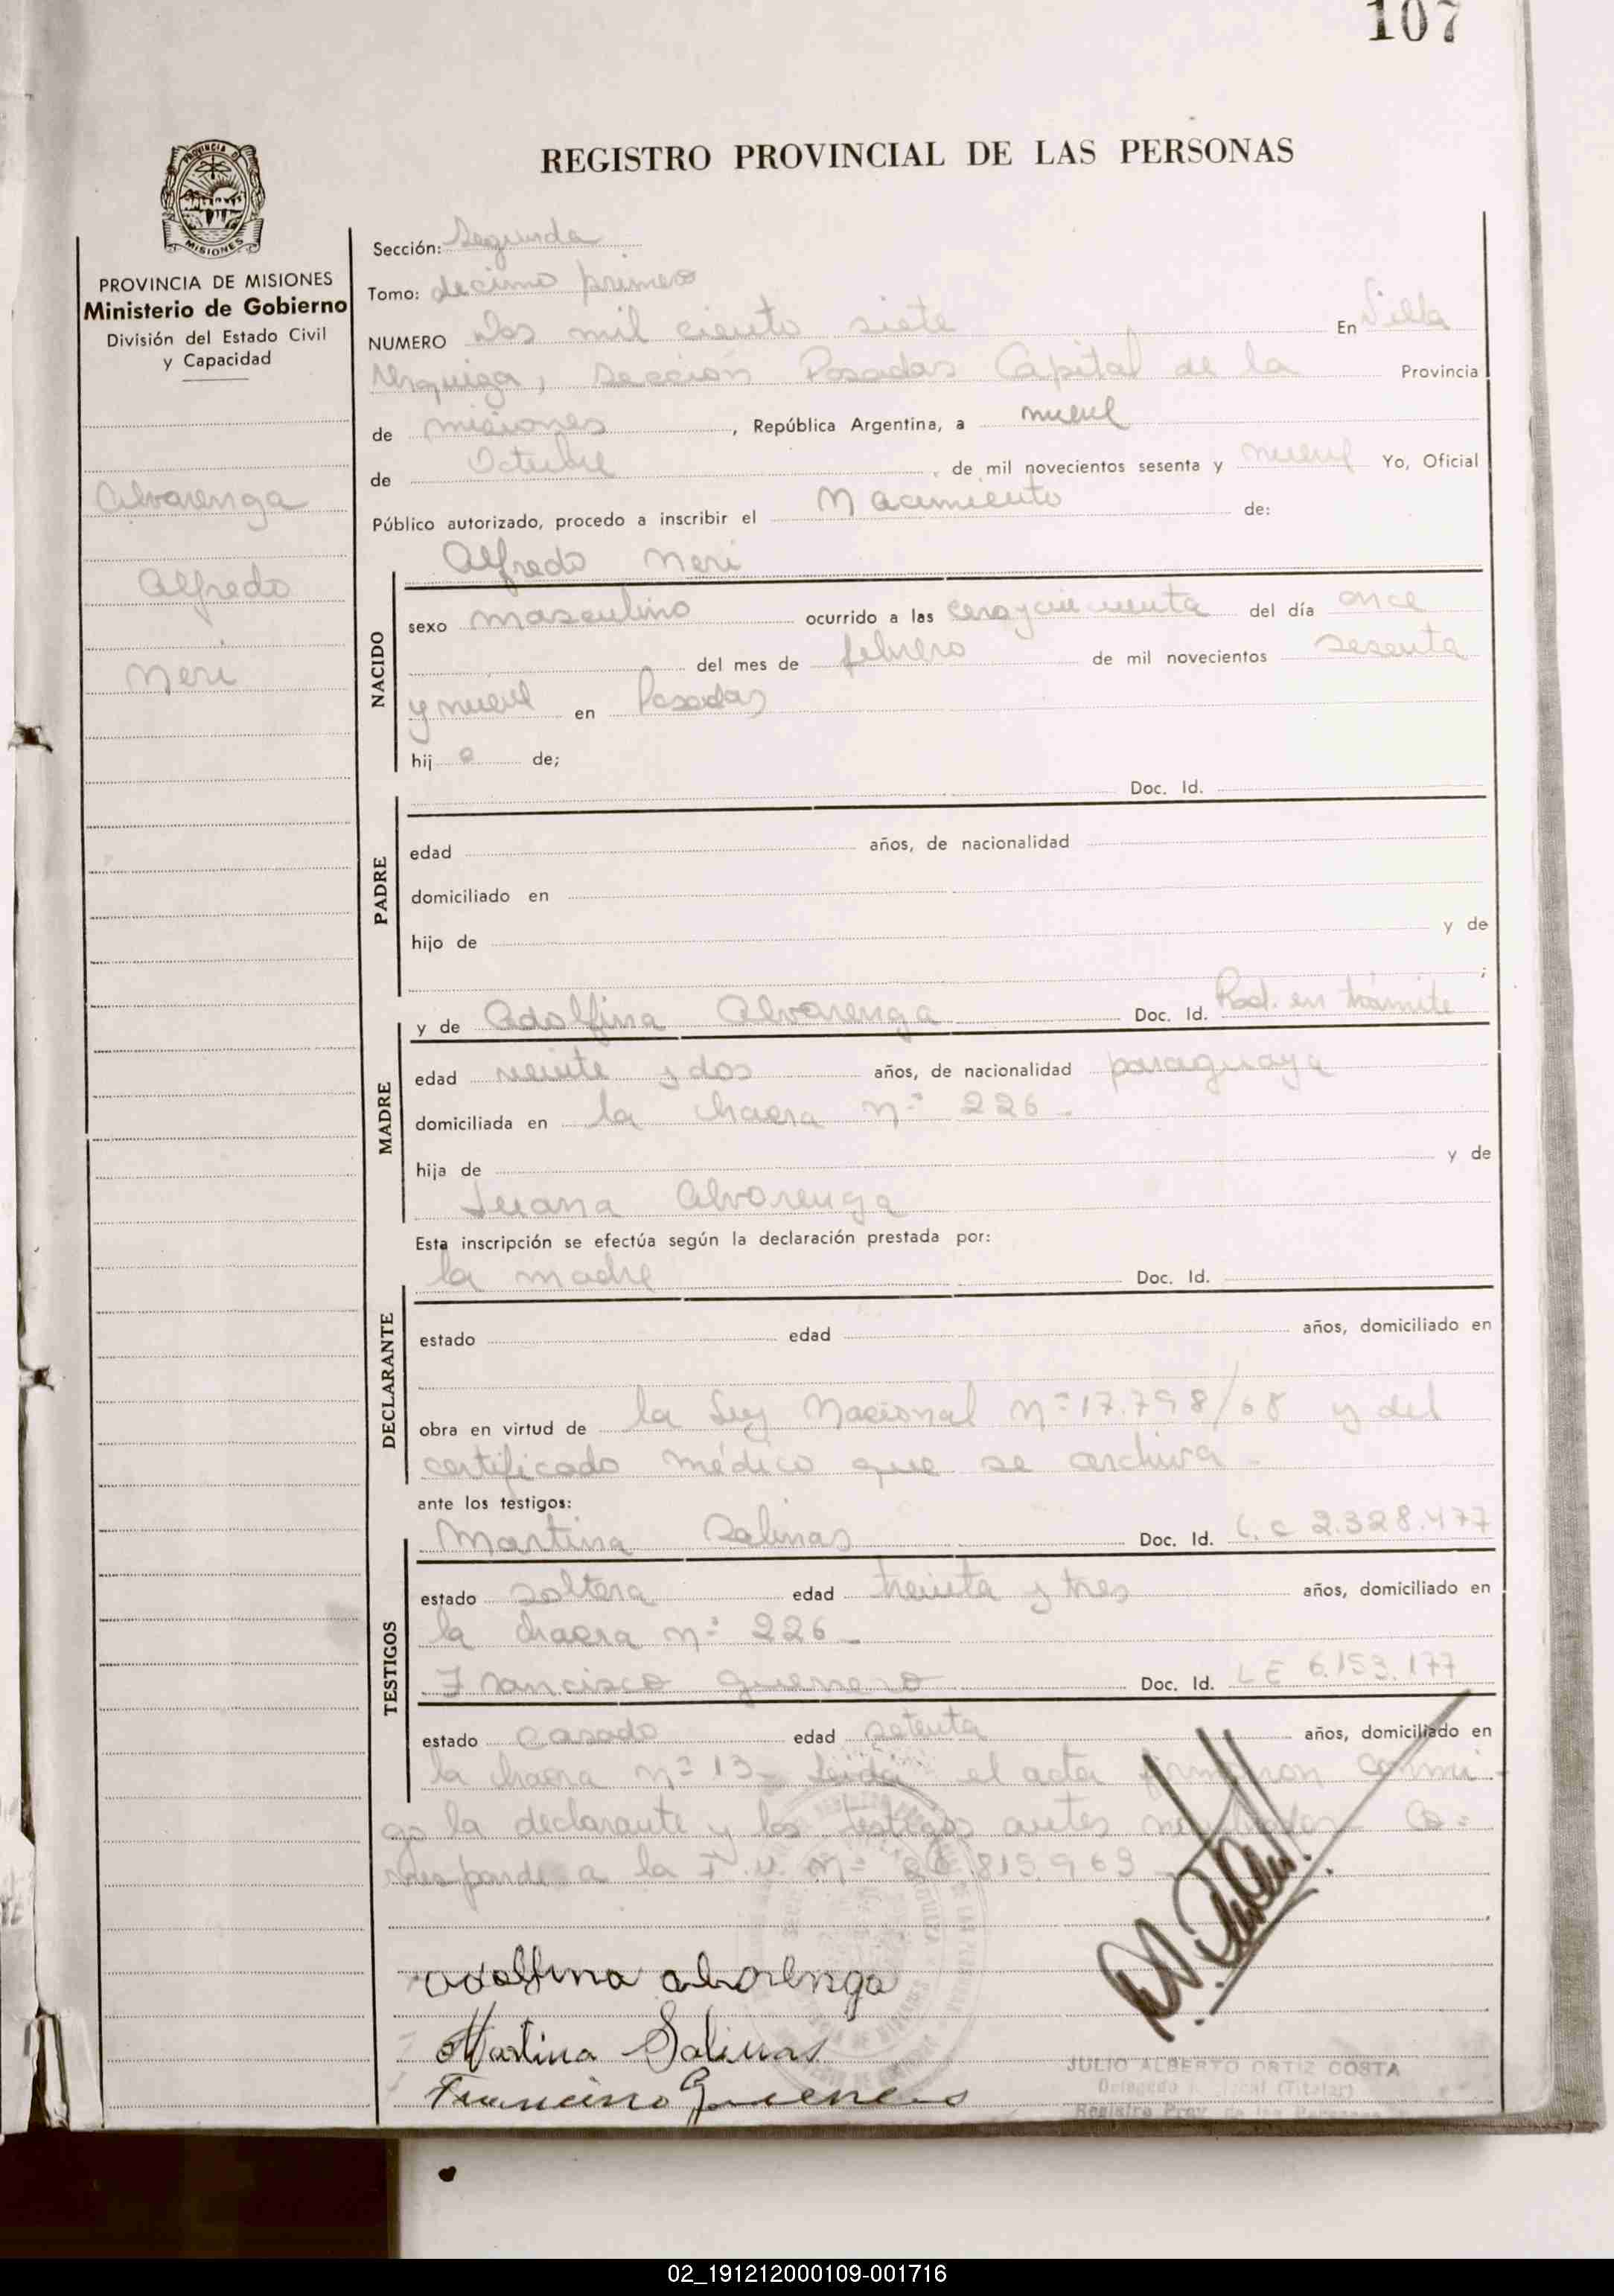 107
REGISTRO PROVINCIAL DE LAS PERSONAS
PROVINCIA DE MISIONES
Ministerio de Gobierno
División del Estado Civil
y Capacidad
Alvarenga
Alfredo
Neri
Sección: Segunda
Tomo: decimo primero
NUMERO dos mil ciento siete En Villa
Urquiza, Sección Posadas Capital de la Provincia
de misiones, República Argentina, a nueve
de Octubre de mil novecientos sesenta y nueve Yo, Oficial
Público autorizado, procedo a inscribir el Nacimiento de:
Alfredo Neri
NACIDO
sexo masculino ocurrido a las cero y cincuenta del día once
del mes de febrero de mil novecientos sesenta
y nueve en Posadas
hij o de;
Doc. Id.
PADRE
edad años, de nacionalidad
domiciliado en
hijo de y de
;
MADRE
y de Adolfina Alvarenga Doc. Id. Rad. en trámite
edad veinte y dos años, de nacionalidad paraguaya
domiciliada en la chacra nº 226.
hija de y de
Alvarenga
Esta inscripción se efectúa según la declaración prestada por:
la madre Doc. Id.
DECLARANTE
estado edad años, domiciliado en
obra en virtud de la Ley Nacional nº 17.798/68 y del
certificado médico que se archiva -
ante los testigos:
TESTIGOS
Martina Salinas Doc. Id. L.C 2.328.477
estado soltera edad treinta y tres años, domiciliado en
la chacra nº 226 -
Francisco Guerrero Doc. Id. LE 6.153.177
estado casado edad setenta años, domiciliado en
la chacra nº 13 - Leida el acta firmaron conmi-
go la declarante y los testigos antes Co=
rresponde a la nº 20.815.963 -
adolfina alvarenga
Martina Salinas
Francisco Guerrero
JULIO ALBERTO ORTIZ COSTA
Delegado (Titular)
Registro Prov. de las Personas
02_191212000109-001716